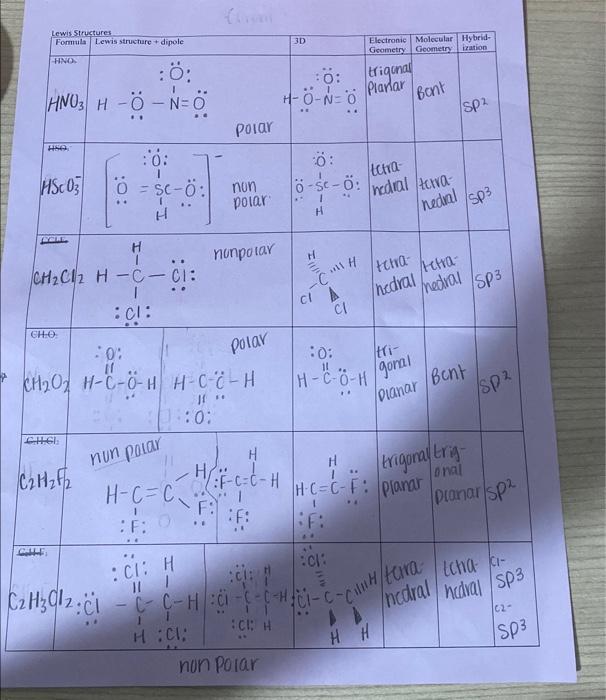 Lewis Structures
Formula Lewis structure + dipole 3D Electronic Geometry Molecular Geometry Hybridization
HNO₃ H - Ö - N = Ö :Ö: polar H - Ö - N = Ö :Ö: trigonal planar Bent sp2
HScO3⁻ [ :Ö: Ö = Sc - Ö: H ]⁻ non polar :Ö: Ö - Sc - Ö: H tetrahedral tetrahedral sp3
CH2Cl2 H H - C - Cl: :Cl: nonpolar H C H Cl Cl tetrahedral tetrahedral sp3
CH2O2 :O: H - C - Ö - H H - C - Ö - H :O: polar :O: H - C - Ö - H tri-gonal planar Bent sp2
C2H2F2 non polar H - C = C H F: :F: H :F - C = C - H :F: H H - C = C - F: :F: trigonal planar trig-onal planar sp2
C2H3Cl2 :Cl: H :Cl - C - C - H H :Cl: :Cl: H :Cl - C - C - H :Cl: H :Cl: :Cl - C - C H H H tetrahedral tetrahedral C1- sp3 C2- sp3
non polar